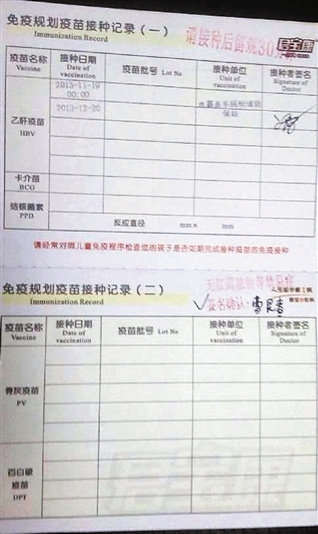 免疫规划疫苗接种记录（一）
Immunization Record
请接种后留观30分
疫苗名称 接种日期 疫苗批号 Lot No 接种单位 接种者签名
Vaccine Date of vaccination Unit of vaccination Signature of Doctor
2013-11-19
00:00
2013-12-20
乙肝疫苗
HBV
卡介苗
BCG
结核菌素
PPD
反应直径 mm× mm
请经常对照儿童免疫程序检查您的孩子是否如期完成接种疫苗的免疫接种
免疫规划疫苗接种记录（二）
Immunization Record
签名确认:
疫苗名称 接种日期 疫苗批号 Lot No 接种单位 接种者签名
Vaccine Date of vaccination Unit of vaccination Signature of Doctor
脊灰疫苗
PV
百白破
疫苗
DPT